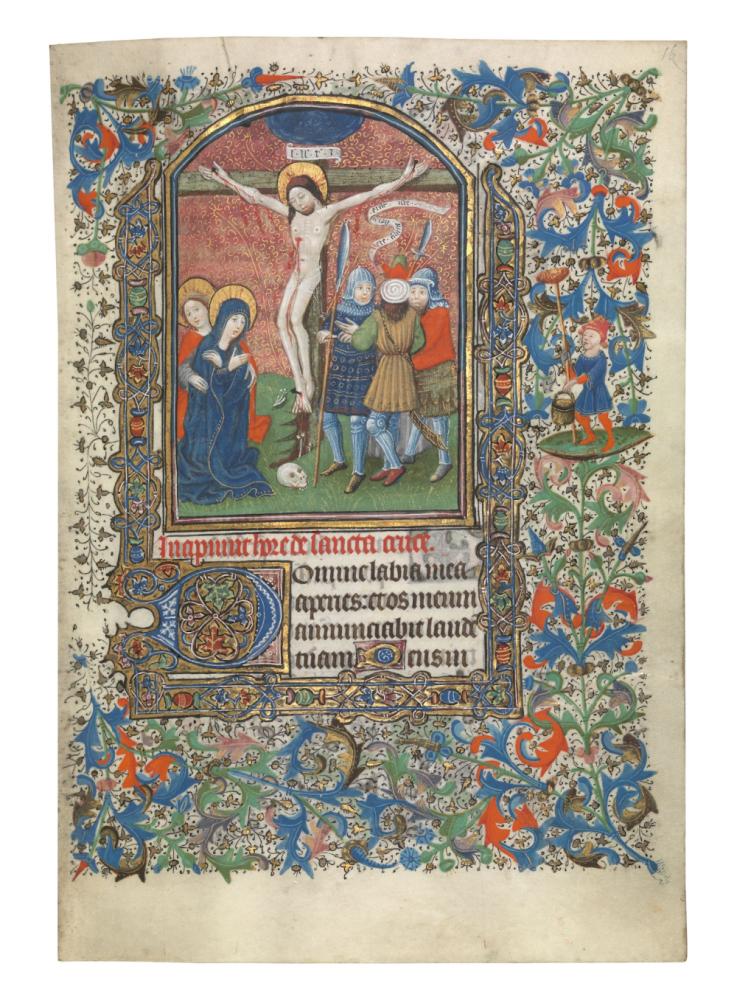 I·N·R·I
Incipiunt hore de sancta cruce.
Domine labia mea
aperies: et os meum
annunciabit laudē
tuam Deus in